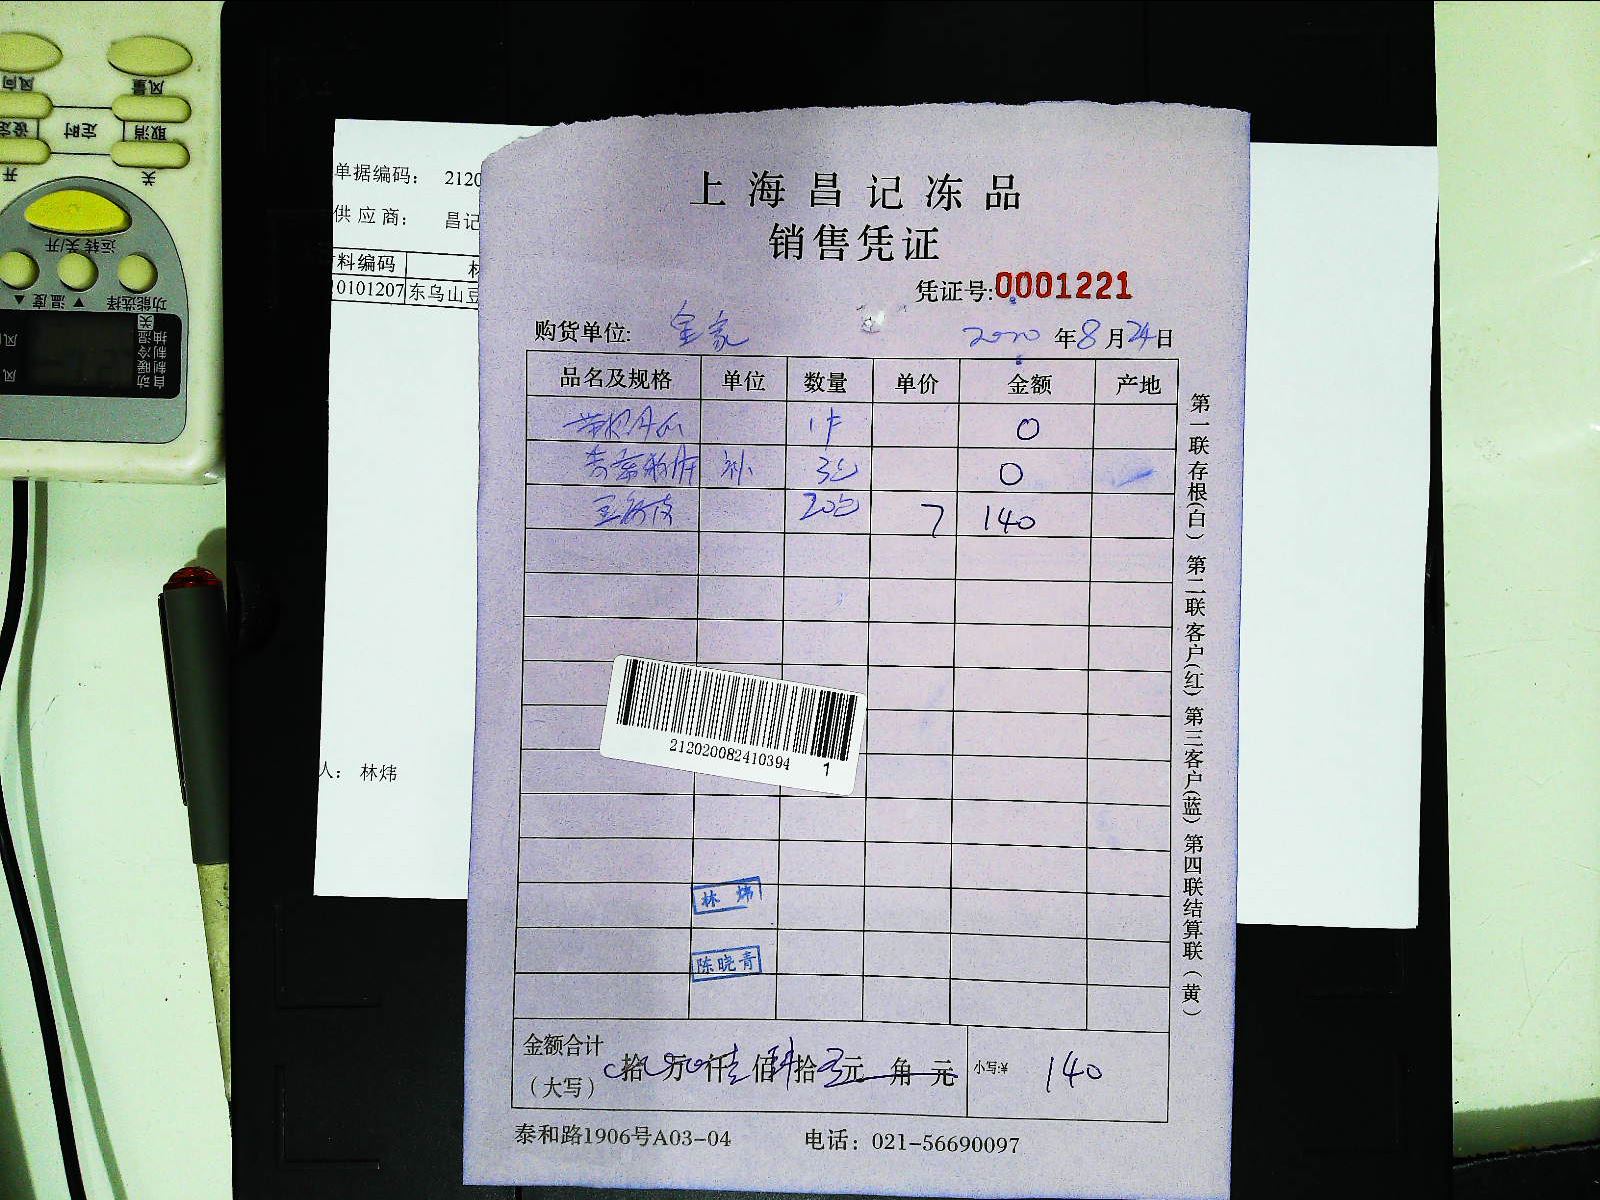 风量
风向
取消
定时
设定
关
开
运转关/开
功能选择
▼ 温度 ▲
关
抽湿
制冷
制暖
自动
风
风
单据编码： 2120
供 应 商： 昌记
料编码
0101207 东乌山豆
人： 林炜
上海昌记冻品
销售凭证
凭证号:0001221
购货单位: 全家 2020年8月24日
品名及规格 单位 数量 单价 金额 产地
0
补 3包 0
20包 7 140
212020082410394 1
林炜
陈晓青
金额合计
(大写)
拾 万 仟 壹佰 肆拾 元 角 元 小写:¥ 140
泰和路1906号A03-04 电话：021-56690097
第一联存根(白) 第二联客户(红) 第三客户(蓝) 第四联结算联(黄)